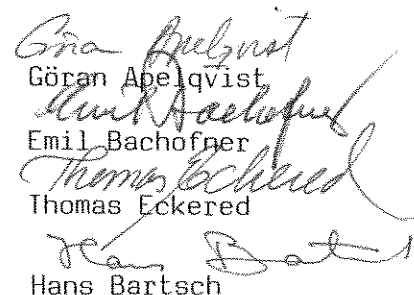 Göran Apelqvist
Göran Apelqvist
Emil Bachofner
Emil Bachofner
Thomas Eckered
Thomas Eckered
Hans Bartsch
Hans Bartsch